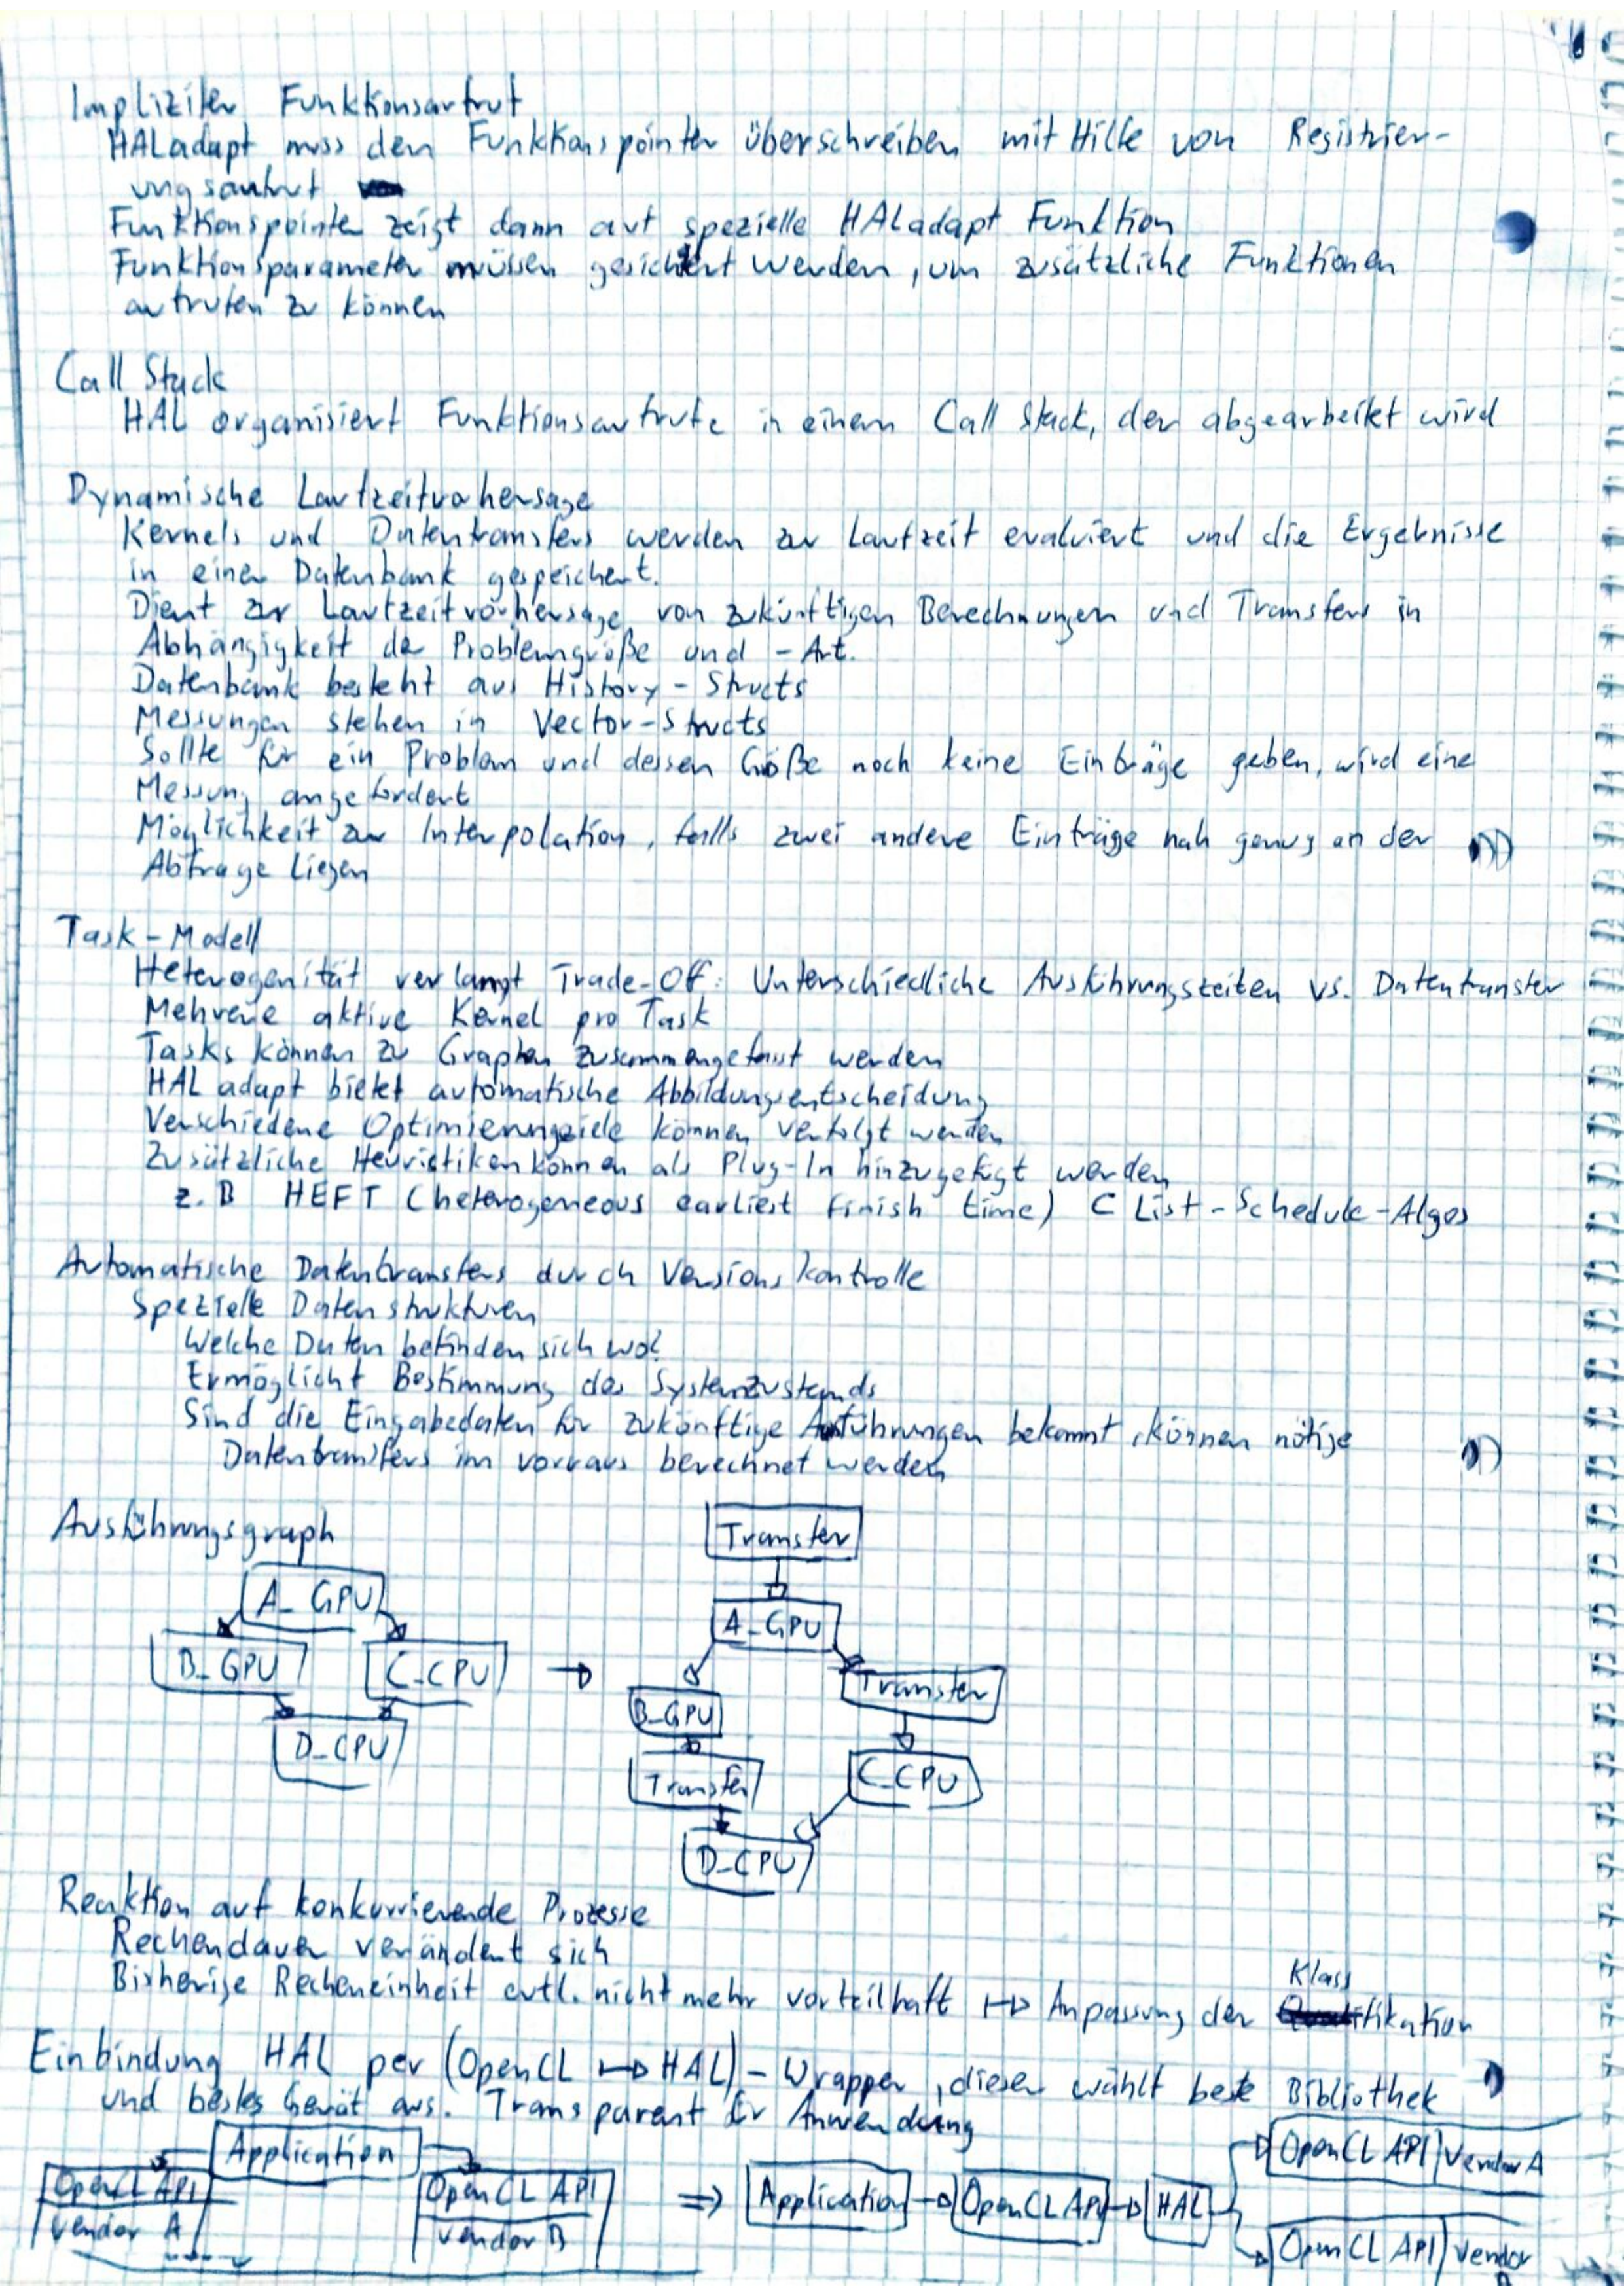 Impliziter Funktionsaufruf
HALadapt muss den Funktionspointer überschreiben mit Hilfe von Registrier-
ungsaufruf
Funktionspointer zeigt dann auf spezielle HALadapt Funktion
Funktionsparameter müssen gesichert werden, um zusätzliche Funktionen
aufrufen zu können
Call Stack
HAL organisiert Funktionsaufrufe in einem Call Stack, der abgearbeitet wird
Dynamische Laufzeitvorhersage
Kernels und Datentransfers werden zur Laufzeit evaluiert und die Ergebnisse
in einer Datenbank gespeichert.
Dient zur Laufzeitvorhersage von zukünftigen Berechnungen und Transfers in
Abhängigkeit der Problemgröße und -Art.
Datenbank besteht aus History-Structs
Messungen stehen in Vector-Structs
Sollte für ein Problem und dessen Größe noch keine Einträge geben, wird eine
Messung angefordert
Möglichkeit zur Interpolation, falls zwei andere Einträge nah genug an der
Abfrage liegen
Task-Modell
Heterogenität verlangt Trade-Off: Unterschiedliche Ausführungszeiten vs. Datentransfer
Mehrere aktive Kernel pro Task
Tasks können zu Graphen zusammengefasst werden
HALadapt bietet automatische Abbildungsentscheidung
Verschiedene Optimierungsziele können verfolgt werden
Zusätzliche Heuristiken können als Plug-In hinzugefügt werden
z.B HEFT (heterogeneous earliest finish time) C List-Schedule-Algos
Automatische Datentransfers durch Versionskontrolle
Spezielle Datenstrukturen
Welche Daten befinden sich wo?
Ermöglicht Bestimmung des Systemzustands
Sind die Eingabedaten für zukünftige Ausführungen bekannt, können nötige
Datentransfers im vorraus berechnet werden
Ausführungsgraph
Transfer
A_GPU
A_GPU
B_GPU
C_CPU
→
Transfer
B_GPU
D_CPU
Transfer
C_CPU
D_CPU
Reaktion auf konkurrierende Prozesse
Rechendauer verändert sich
Bisherige Recheneinheit evtl. nicht mehr vorteilhaft ↦ Anpassung der Klassifikation
Einbindung HAL per (OpenCL ↦ HAL)-Wrapper, dieser wählt beste Bibliothek
und bestes Gerät aus. Transparent für Anwendung
Application
OpenCL API
vendor A
OpenCL API
vendor B
⇒
Application
OpenCL API
HAL
OpenCL API
Vendor A
OpenCL API
Vendor